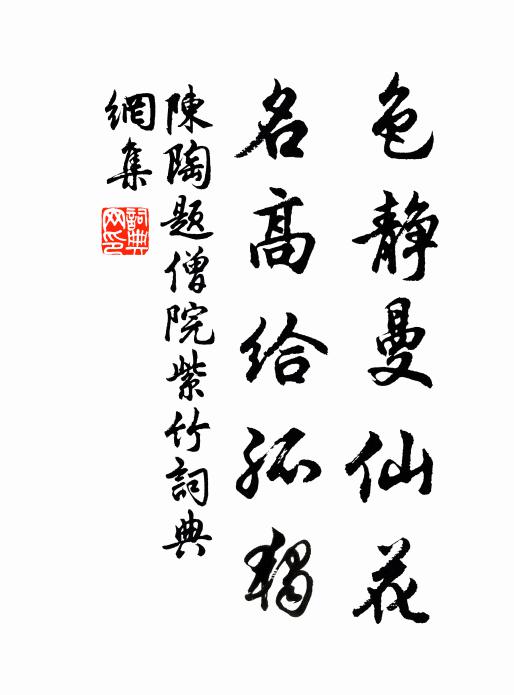 色静曼仙花
名高给孤獨
陳陶題僧院紫竹詞典
網集
詞典網印